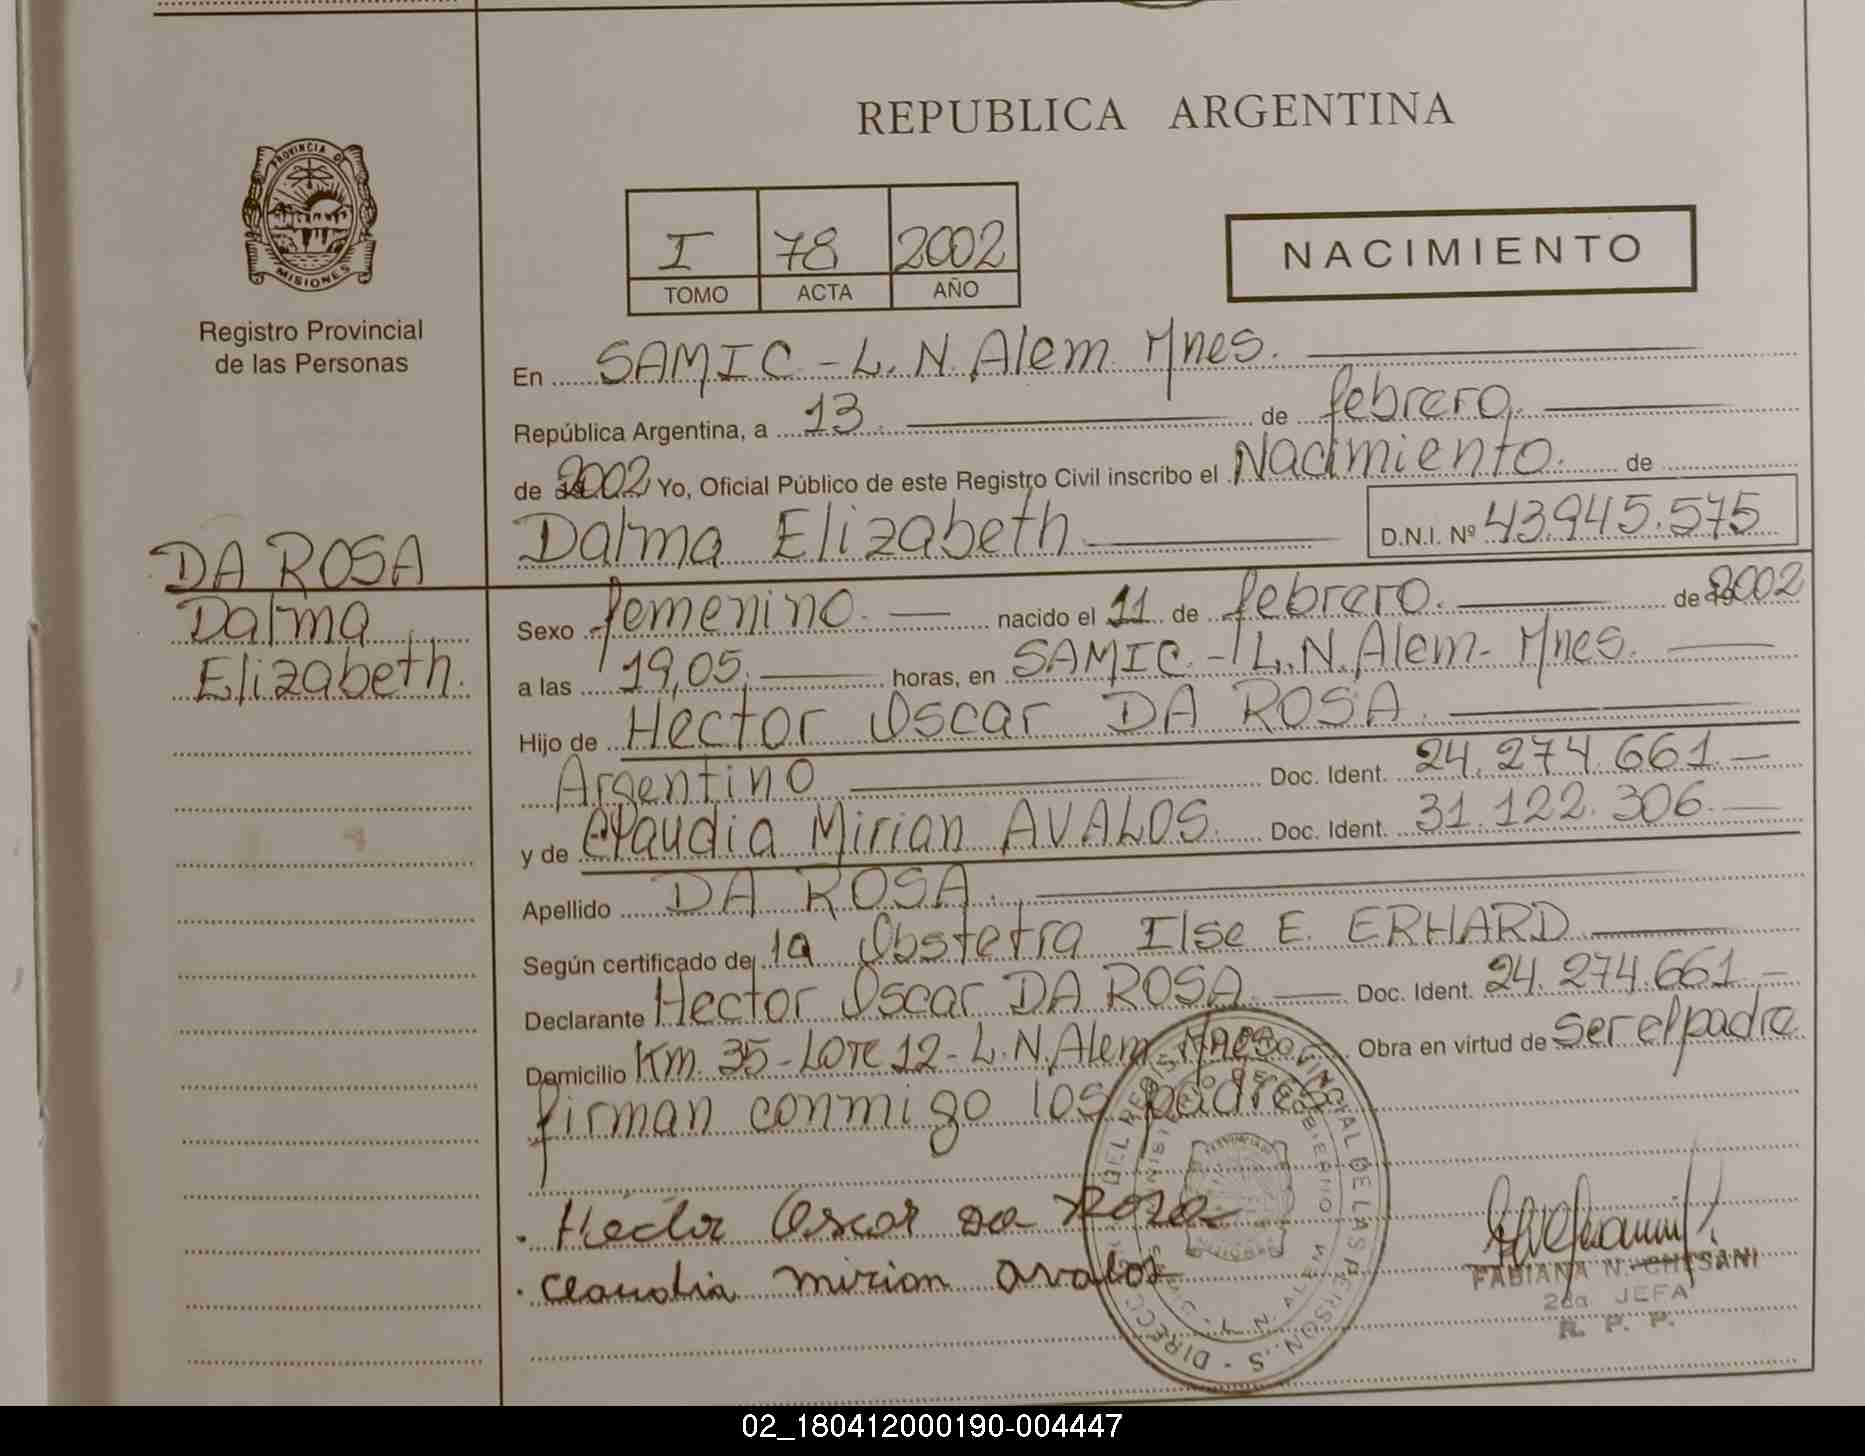 REPUBLICA ARGENTINA
PROVINCIA DE
MISIONES
Registro Provincial
de las Personas
I 78 2002
TOMO ACTA AÑO
NACIMIENTO
En SAMIC - L. N. Alem Mnes.
República Argentina, a 13 de febrero
de 2002 Yo, Oficial Público de este Registro Civil inscribo el Nacimiento de
Dalma Elizabeth D.N.I. Nº 43.945.575
DA ROSA
Dalma
Elizabeth.
Sexo femenino. nacido el 11 de febrero. de 2002
a las 19,05. horas, en SAMIC. - L. N. Alem - Mnes.
Hijo de Hector Oscar DA ROSA
Argentino Doc. Ident. 24.274.661.-
y de Claudia Mirian AVALOS. Doc. Ident. 31.122.306.-
Apellido DA ROSA.
Según certificado de la Obstetra Ilse E. ERHARD
Declarante Hector Oscar DA ROSA. Doc. Ident. 24.274.661.-
Domicilio Km. 35 - Lote 12 - L. N. Alem - Mnes. Obra en virtud de ser el padre
firman conmigo los padres
Hector Oscar da Roza
Claudia mirian avalos
FABIANA N. CHESANI
2da JEFA
R. P. P.
02_180412000190-004447